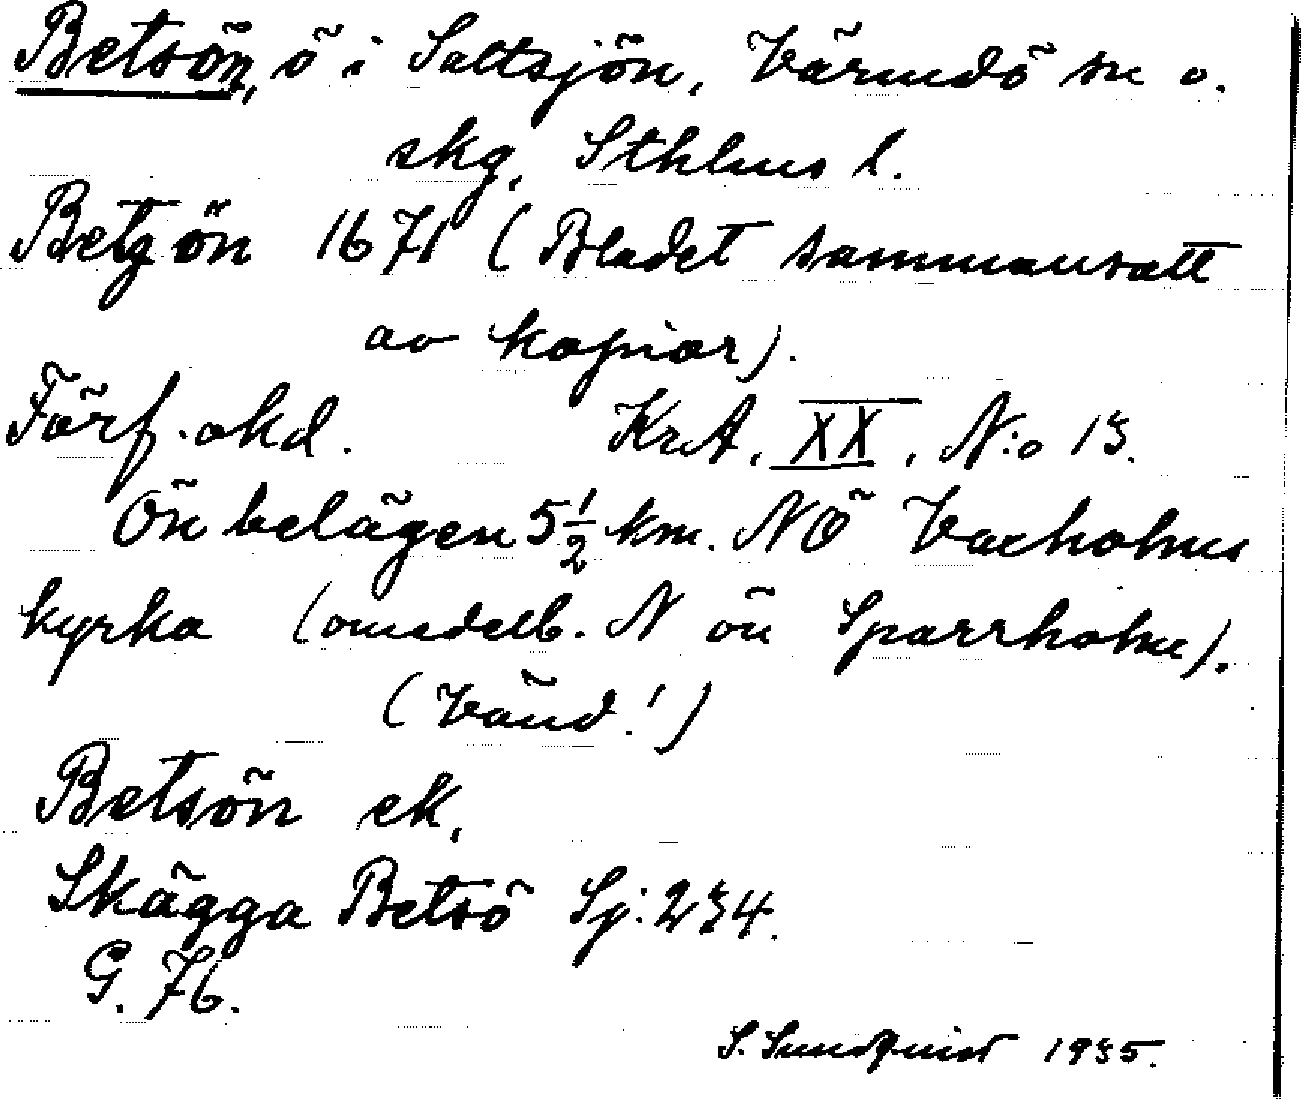 Betsön, ö i Saltsjön, Värmdö sn o.
skg, Sthlms l.
Betzön 1671 (Bladet sammansatt
av kopior).
Förf. okd. KrA, XX, N:o 13.
Ön belägen 5 1/2 km. NÖ Vaxholms
kyrka (omedelb. N ön Sparrholm).
(Vänd!)
Betsön ek.
Skägga Betsö Sj: 234.
G. 76.
S. Sundquist 1935.